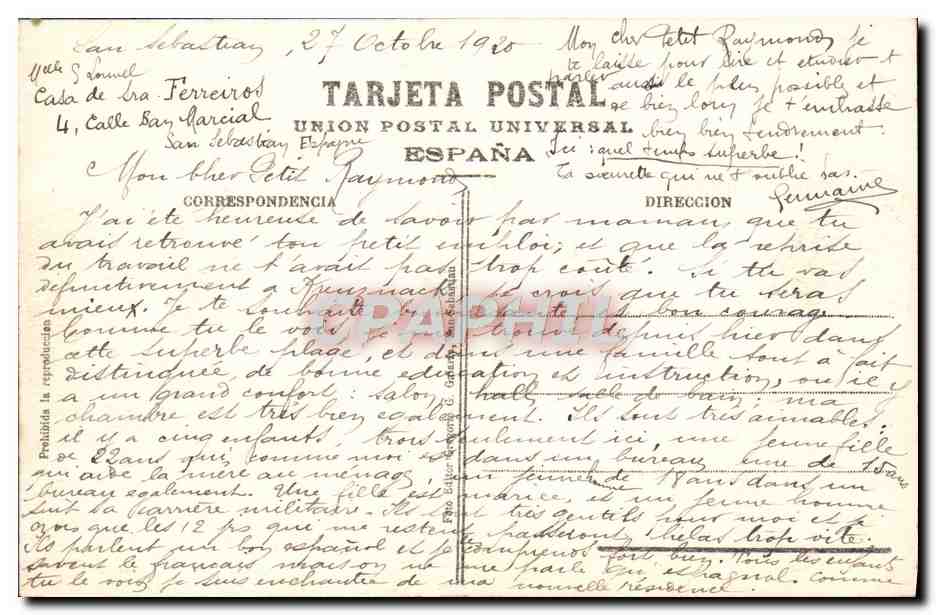 San Sebastian, 27 Octobre 1920
Melle G Louvel
Casa de Sra Ferreiros
4, Calle San Marcial
San Sebastian Espagne
TARJETA POSTAL
UNION POSTAL UNIVERSAL
ESPAÑA
CORRESPONDENCIA
DIRECCION
Mon cher Petit Raymond
J'ai été heureuse de savoir par maman, que tu
avais retrouvé ton petit emploi; et que la reprise
du travail ne t'avait pas trop coûté. Si tu vas
définitivement a Kreuznach je crois que tu seras
mieux. Je te souhaite bonne santé bon courage.
Comme tu le vois je me trouve depuis hier dans
cette superbe plage, et dans une famille tout à fait
distinguée, de bonne education et instruction, où il y
a un grand confort: salon, hall, salle de bain; ma
chambre est très bien également. Ils sont très aimables.
il y a cinq enfants, trois seulement ici, une jeune fille
de 22 ans qui comme moi est dans un bureau, une de 15 ans
qui aide la mère au ménage, un jeune homme 18 ans dans un
bureau également. Une fille est mariée, et un jeune homme
suit la carrière militaire. Ils sont très gentils pour moi et je
crois que les 12 jrs qui me restent passeront hélas trop vite.
Ils parlent un bon español et je comprends fort bien. Tous les enfants
savent le français mais on ne me parle qu'espagnol. Comme
tu le vois je suis enchantée de ma nouvelle résidence.
Mon cher Petit Raymond, je
te laisse pour lire et étudier et
parler aussi le plus possible et
de bien loin je t'embrasse
bien bien tendrement.
Ici: quel temps superbe!
Ta soeurette qui ne t'oublie pas.
Germaine
Prohibida la reproduccion
Foto Editor Gregorio G. Galarza, San Sebastian
CPAPHIL